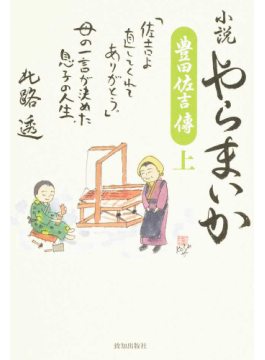 小説
やらまいか
豊田佐吉傳
上
「佐吉よ
直してくれて
ありがとう。」
母の一言が決めた
息子の人生
北路透
致知出版社